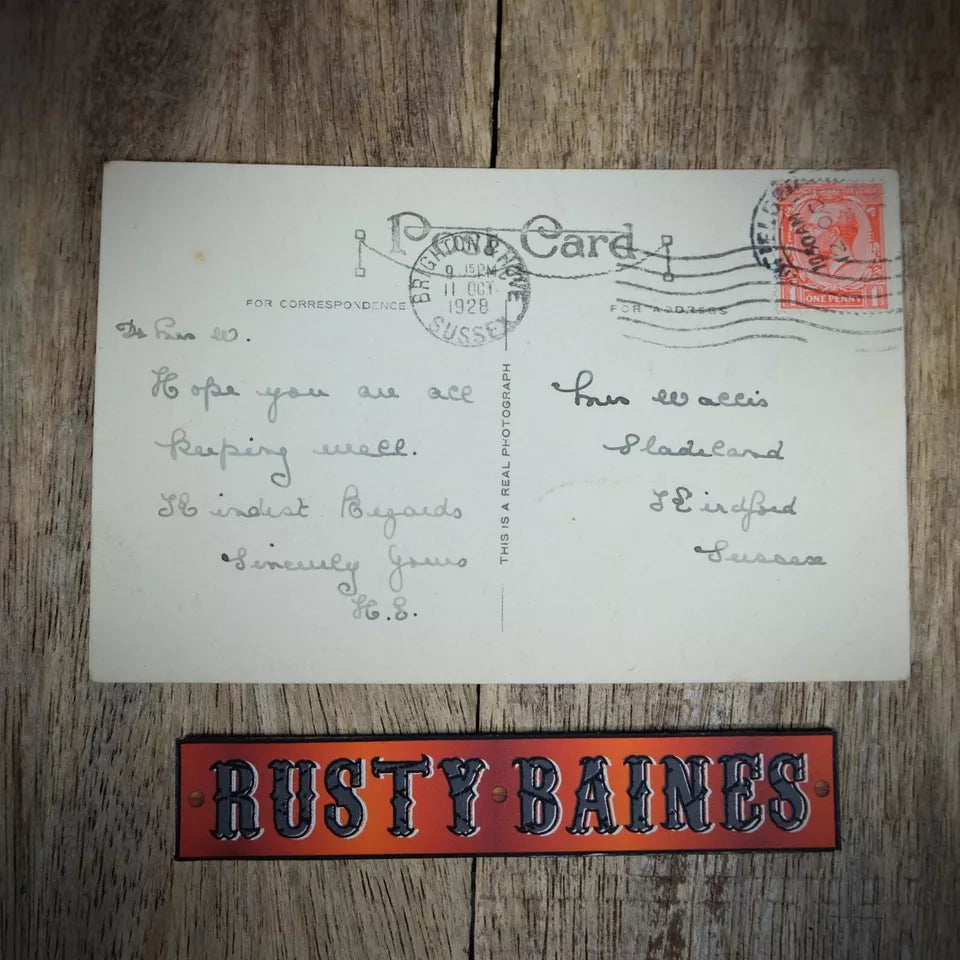 Post Card
BRIGHTON & HOVE
9 15PM
11 OCT
1928
SUSSEX
10 30AM
12 OC
ONE PENNY
FOR CORRESPONDENCE
FOR ADDRESS
Dr Mrs W.
Hope you are all
keeping well.
Kindest Regards
Sincerely Yours
H.E.
THIS IS A REAL PHOTOGRAPH
Mrs Wallis
Sladeland
Kirdford
Sussex
RUSTY BAINES